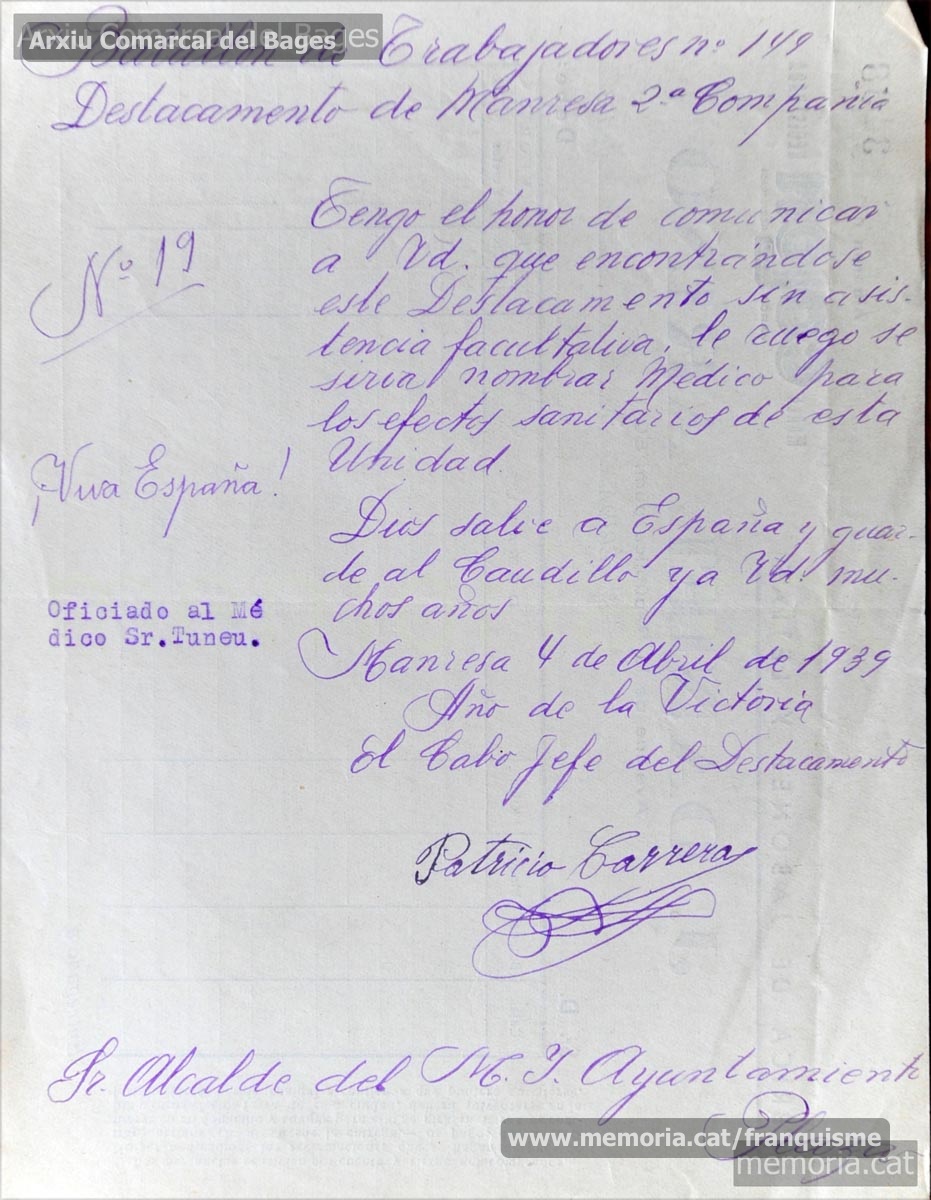 Arxiu Comarcal del Bages
Batallón de Trabajadores nº 149
Destacamento de Manresa 2ª Compañia
Tengo el honor de comunicar
a Vd. que encontrándose
este Destacamento sin asis-
tencia facultativa, le ruego se
sirva nombrar Médico para
los efectos sanitarios de esta
Unidad.
Nº 19
¡Viva España!
Dios salve a España y guar-
de al Caudillo y a Vd. mu-
chos años
Oficiado al Mé
dico Sr.Tuneu.
Manresa 4 de Abril de 1939
Año de la Victoria
El Cabo Jefe del Destacamento
Patricio Carreras
Sr. Alcalde del M. I. Ayuntamiento
Plaza
www.memoria.cat/franquisme
memoria.cat